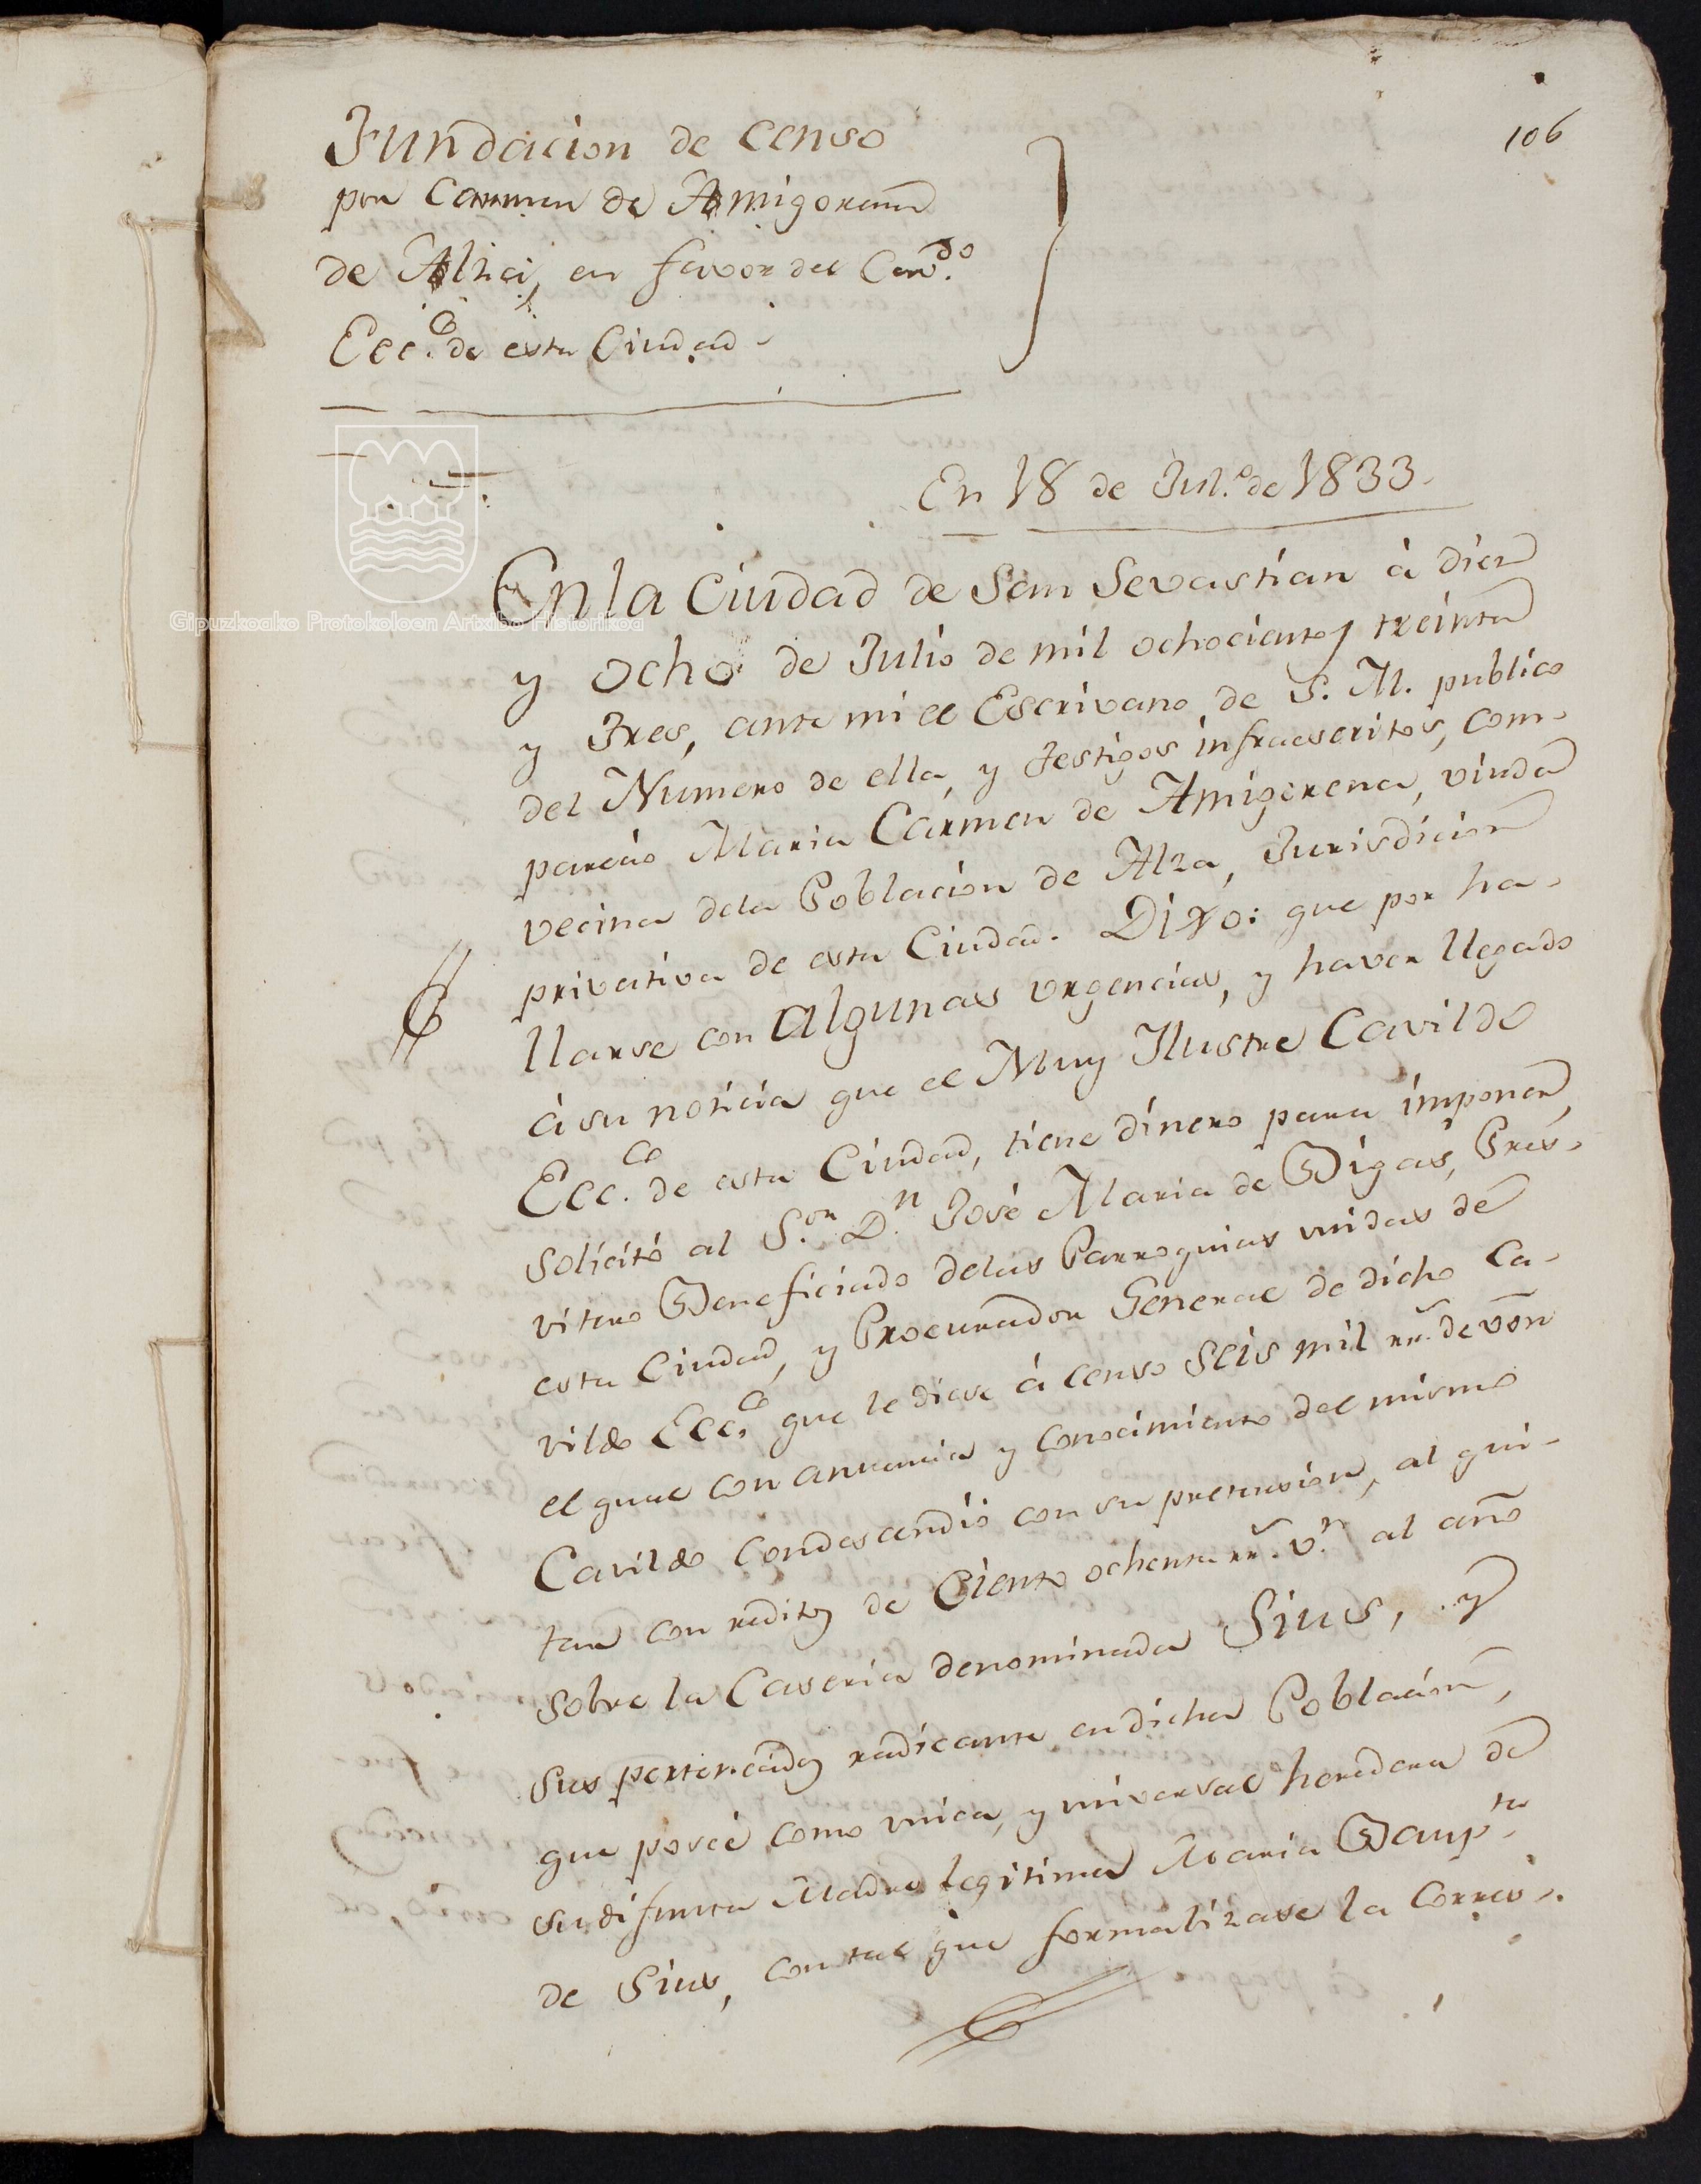 106
Fundacion de Censo
por Carmen de Amigorena
de Alza, en favor del Cav.do
Ecc.co de esta Ciudad.
En 18 de Jul.o de 1833.
Gipuzkoako Protokoloen Artxibo Historikoa
En la Ciudad de San Sevastian à diez
y ocho de Julio de mil ochocientos treinta
y Tres, ante mi el Escrivano de S. M. publico
del Numero de ella, y testigos infraescritos, com-
pareció Maria Carmen de Amigorena, viuda
vecina dela Poblacion de Alza, Jurisdicion
privativa de esta Ciudad. Dixo: que por ha-
llarse con algunas urgencias, y haver llegado
à su noticia que el Muy Ilustre Cavildo
Ecc.co de esta Ciudad, tiene dinero para imponer,
solicitó al S.or D.n José Maria de Bigas, Pres-
vitero Beneficiado delas Parroquias unidas de
esta Ciudad, y Procurador General de dicho Ca-
vildo Ecc.co que le diese à censo seis mil rr.s de von
el qual con anuencia y conocimiento del mismo
Cavildo Condescendió con su pretension, al qui-
tar con reditos de Ciento ochenta rr.s v.n al año
sobre la Caseria denominada Sius, y
sus pertenecidos radicante en dicha Poblacion,
que poseé como unica, y universal heredera de
su difunta Madre legitima Maria Baup.ta
de Sius, con tal que formalizase la Corres-